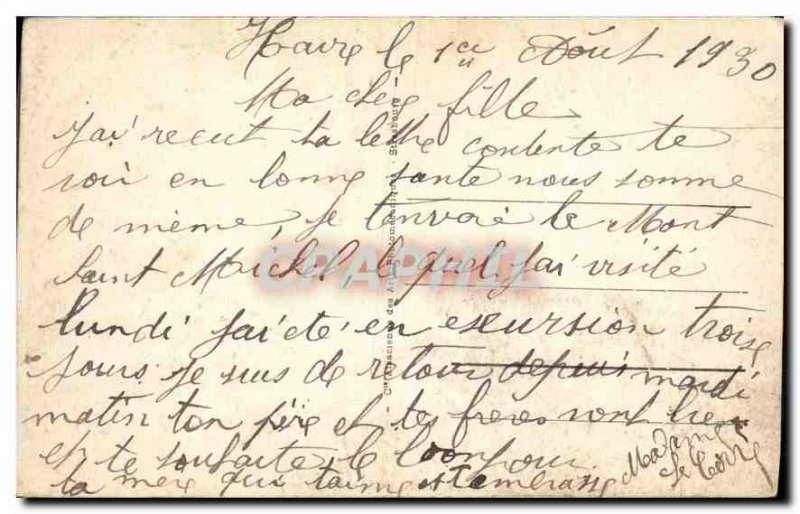 Havre le 1er Août 1930
Ma cher fille
J'ai recut ta lettre contente te
voir en bonne sante nous somme
de même, je t'anvoie le Mont
Saint Michel, le quel j'ai visité
lundi j'ai été en exursion trois
jours je suis de retour depuis mardi
matin ton père et tes frères vont bien
et te souhaite le bonjour
ta mère qui t'aime et t'embrasse
Madame
CPAPHIL
Cie Alsacienne des Arts Photomécaniques - Strasbourg